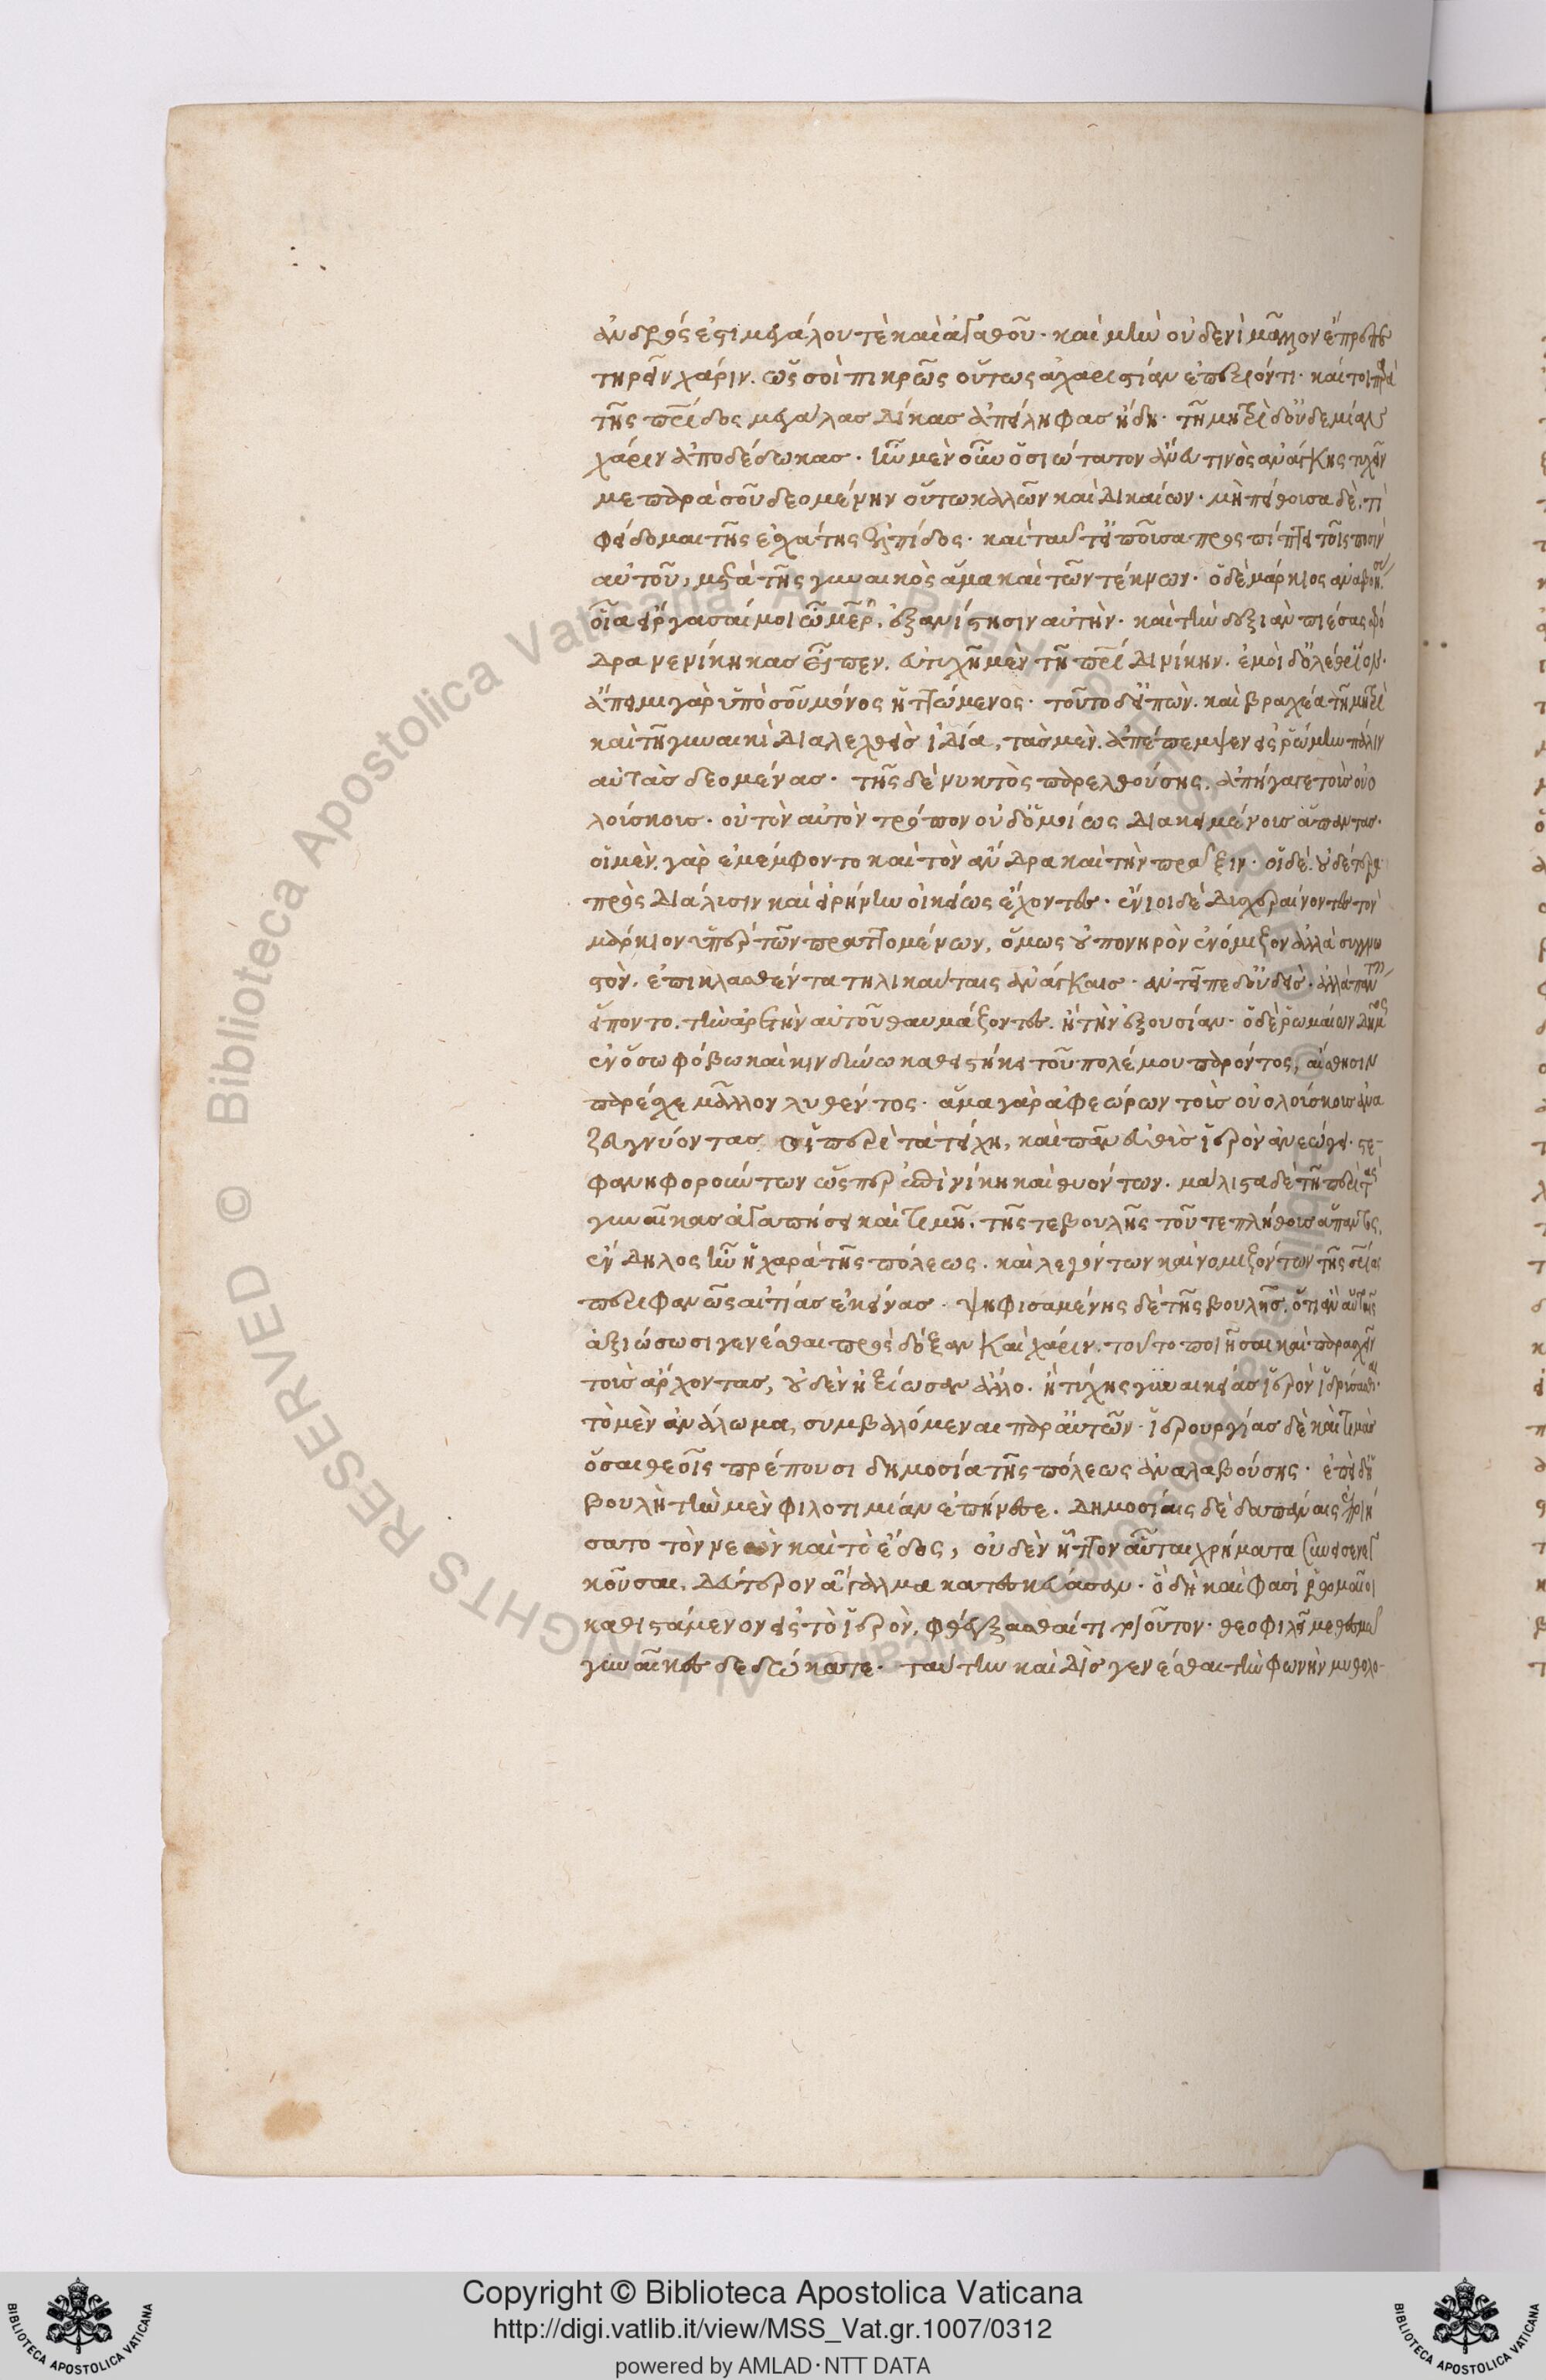 ἀνδρός ἐστι μεγάλου τὲ καὶ ἀγαθοῦ· καὶ μὴν οὐδενὶ μᾶλλον ἔπρεπε
τηρεῖν χάριν. ὡς σοὶ πικρῶς οὕτως ἀχαριστίαν ἐπεξιόντι· καίτοι παρὰ
τῆς πατρίδος μεγάλας δίκας ἀπείληφας ἤδη· τῇ μητρὶ δ' οὐδεμίαν
χάριν ἀποδέδωκας· ἦν μὲν οὖν ὁσιώτατον ἄνευ τινὸς ἀνάγκης τυχεῖν
με παρὰ σοῦ δεομένην οὕτω καλῶν καὶ δικαίων· μὴ πείθουσα δὲ. τί
φείδομαι τῆς ἐσχάτης ἐλπίδος· καὶ ταῦτ' εἰποῦσα προσπίπτει τοῖς ποσὶν
αὐτοῦ, μετὰ τῆς γυναικὸς ἅμα καὶ τῶν τέκνων· ὁ δὲ μάρκιος ἀναβοήσας
οἷα εἴργασαί μοι ὦ μῆτερ. ἐξανίστησιν αὐτὴν· καὶ τὴν δεξιὰν πιέσας σφό
δρα νενίκηκας εἶπεν. εὐτυχῆ μὲν τῇ πατρίδι νίκην. ἐμοὶ δ' ὀλέθριον·
ἄπειμι γὰρ ὑπὸ σοῦ μόνης ἡττώμενος· τοῦτο δ' εἰπὼν. καὶ βραχέα τῇ μητρὶ
καὶ τῇ γυναικὶ διαλεχθεὶς ἰδία, τὰς μὲν. ἀπέπεμψεν εἰς ῥώμην πάλιν
αὐτὰς δεομένας· τῆς δὲ νυκτὸς παρελθούσης. ἀπήγαγε τοὺς οὐο
λούσκους· οὐ τὸν αὐτὸν τρόπον οὐδ' ὁμοίως διακειμένους ἅπαντας·
οἱ μὲν. γὰρ ἐμέμφοντο καὶ τὸν ἄνδρα καὶ τὴν πρᾶξιν· οἱ δὲ. οὐδέτερα
πρὸς διάλυσιν καὶ εἰρήνην οἰκείως ἔχοντες· ἔνιοι δὲ δυσχεραίνοντες τὸν
μάρκιον ὑπὲρ τῶν πραττομένων, ὅμως οὐ πονηρὸν ἐνόμιζον ἀλλὰ συγγνω
στὸν. ἐπικλασθέντα τηλικαύταις ἀνάγκαις· ἀντεῖπε δ' οὐδεὶς· ἀλλὰ πάντες
εἵποντο. τὴν ἀρετὴν αὐτοῦ θαυμάζοντες. ἢ τὴν ἐξουσίαν· ὁ δὲ ῥωμαίων δῆμος
ἐν ὅσω φόβω καὶ κινδύνω καθειστήκει τοῦ πολέμου παρόντος, αἴσθησιν
παρέσχε μᾶλλον λυθέντος· ἅμα γὰρ ἀφεώρων τοὺς οὐολούσκους ἀνα
ζευγνύοντας οἱ περὶ τὰ τείχη, καὶ πᾶν εὐθὺς ἱερὸν ἀνεώγει· στε-
φανηφορούντων ὥσπερ ἐπὶ νίκη καὶ θυόντων. μάλιστα δὲ τῇ περὶ τὰς
γυναῖκας ἀγαπήσει καὶ τιμῇ. τῆς τε βουλῆς τοῦ τε πλήθους ἅπαντος.
ἔνδηλος ἦν ἡ χαρὰ τῆς πόλεως. καὶ λεγόντων καὶ νομιζόντων τῆς σωτηρίας
περιφανῶς αἰτίας ἐκείνας· ψηφισαμένης δὲ τῆς βουλῆς. ὅτι ἂν αὑταῖς
ἀξιώσωσι γενέσθαι πρὸς δόξαν καὶ χάριν. τοῦτο ποιῆσαι καὶ παρασχεῖν
τοὺς ἄρχοντας, οὐδὲν ἠξίωσαν ἄλλο. ἢ τύχης γυναικείας ἱερὸν ἱδρύσασθαι·
τὸ μὲν ἀνάλωμα, συμβαλόμεναι παρ' αὑτῶν· ἱερουργίας δὲ καὶ τιμὰς
ὅσαι θεοῖς πρέπουσι δημοσία τῆς πόλεως ἀναλαβούσης· ἐπεὶ δ' ἡ
βουλὴ τὴν μὲν φιλοτιμίαν ἐπήνεσε. δημοσίαις δὲ δαπάναις ἐποιή
σατο τὸν νεὼν καὶ τὸ ἕδος, οὐδὲν ἧττον αὗται χρήματα συνεισενεγ
κοῦσαι. δεύτερον ἄγαλμα κατεσκεύασαν· ὃ δὴ καὶ φασὶ ῥωμαῖοι
καθιστάμενον εἰς τὸ ἱερὸν. φθέγξασθαί τι τοιοῦτον· θεοφιλεῖ με θεσμῷ
γυναῖκες δεδώκατε· ταύτην καὶ δὶς γενέσθαι τὴν φωνὴν μυθολο-
Copyright © Biblioteca Apostolica Vaticana
http://digi.vatlib.it/view/MSS_Vat.gr.1007/0312
powered by AMLAD·NTT DATA